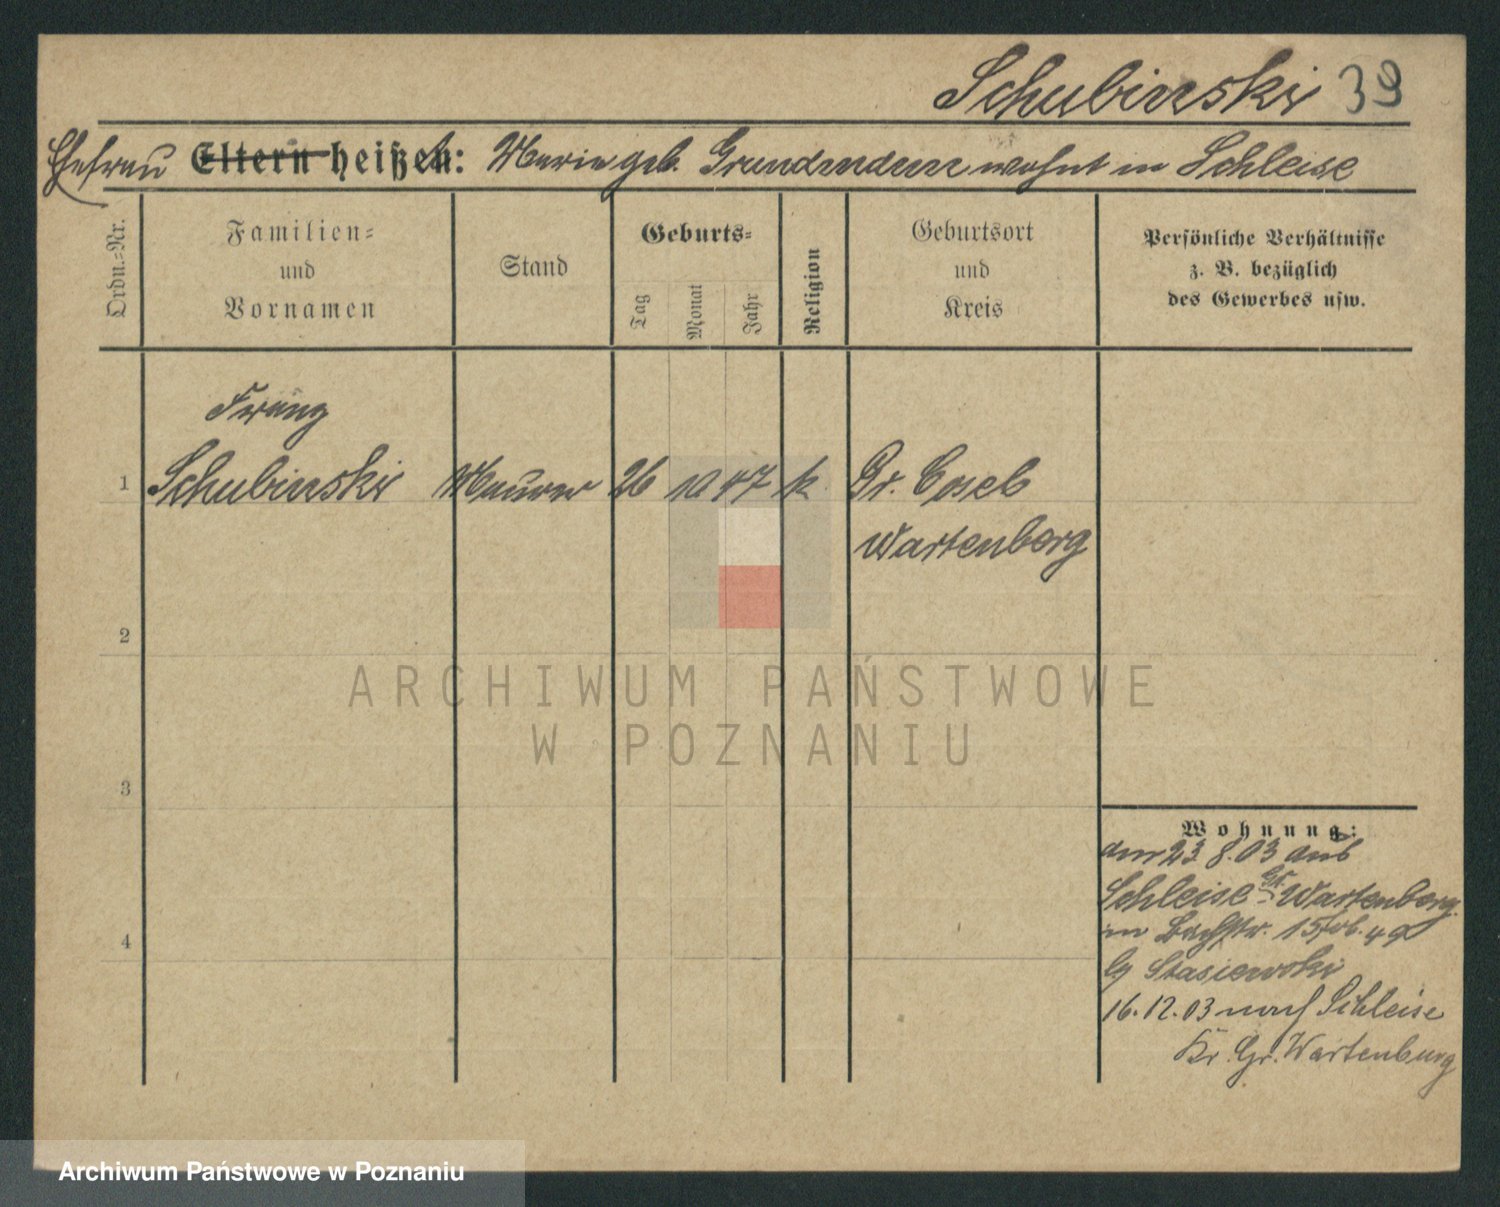 Schubinski 39
Ehefrau Eltern heißen: Marie geb. wohnt in Schleise
Ordn.-Nr.
Familien-
und
Vornamen
Stand
Geburts-
Tag
Monat
Jahr
Religion
Geburtsort
und
Kreis
Persönliche Verhältnisse
z. B. bezüglich
des Gewerbes usw.
Franz
1 Schubinski Maurer 26 10 47 k Gr. Cosel
Wartenberg
2
ARCHIWUM PAŃSTWOWE
W POZNANIU
3
4
Wohnung:
am 23 8. 03 aus
Schleise Gr. Wartenberg
15
Stasiewski
16. 12. 03 nach Schleise
Kr. Gr. Wartenburg
Archiwum Państwowe w Poznaniu